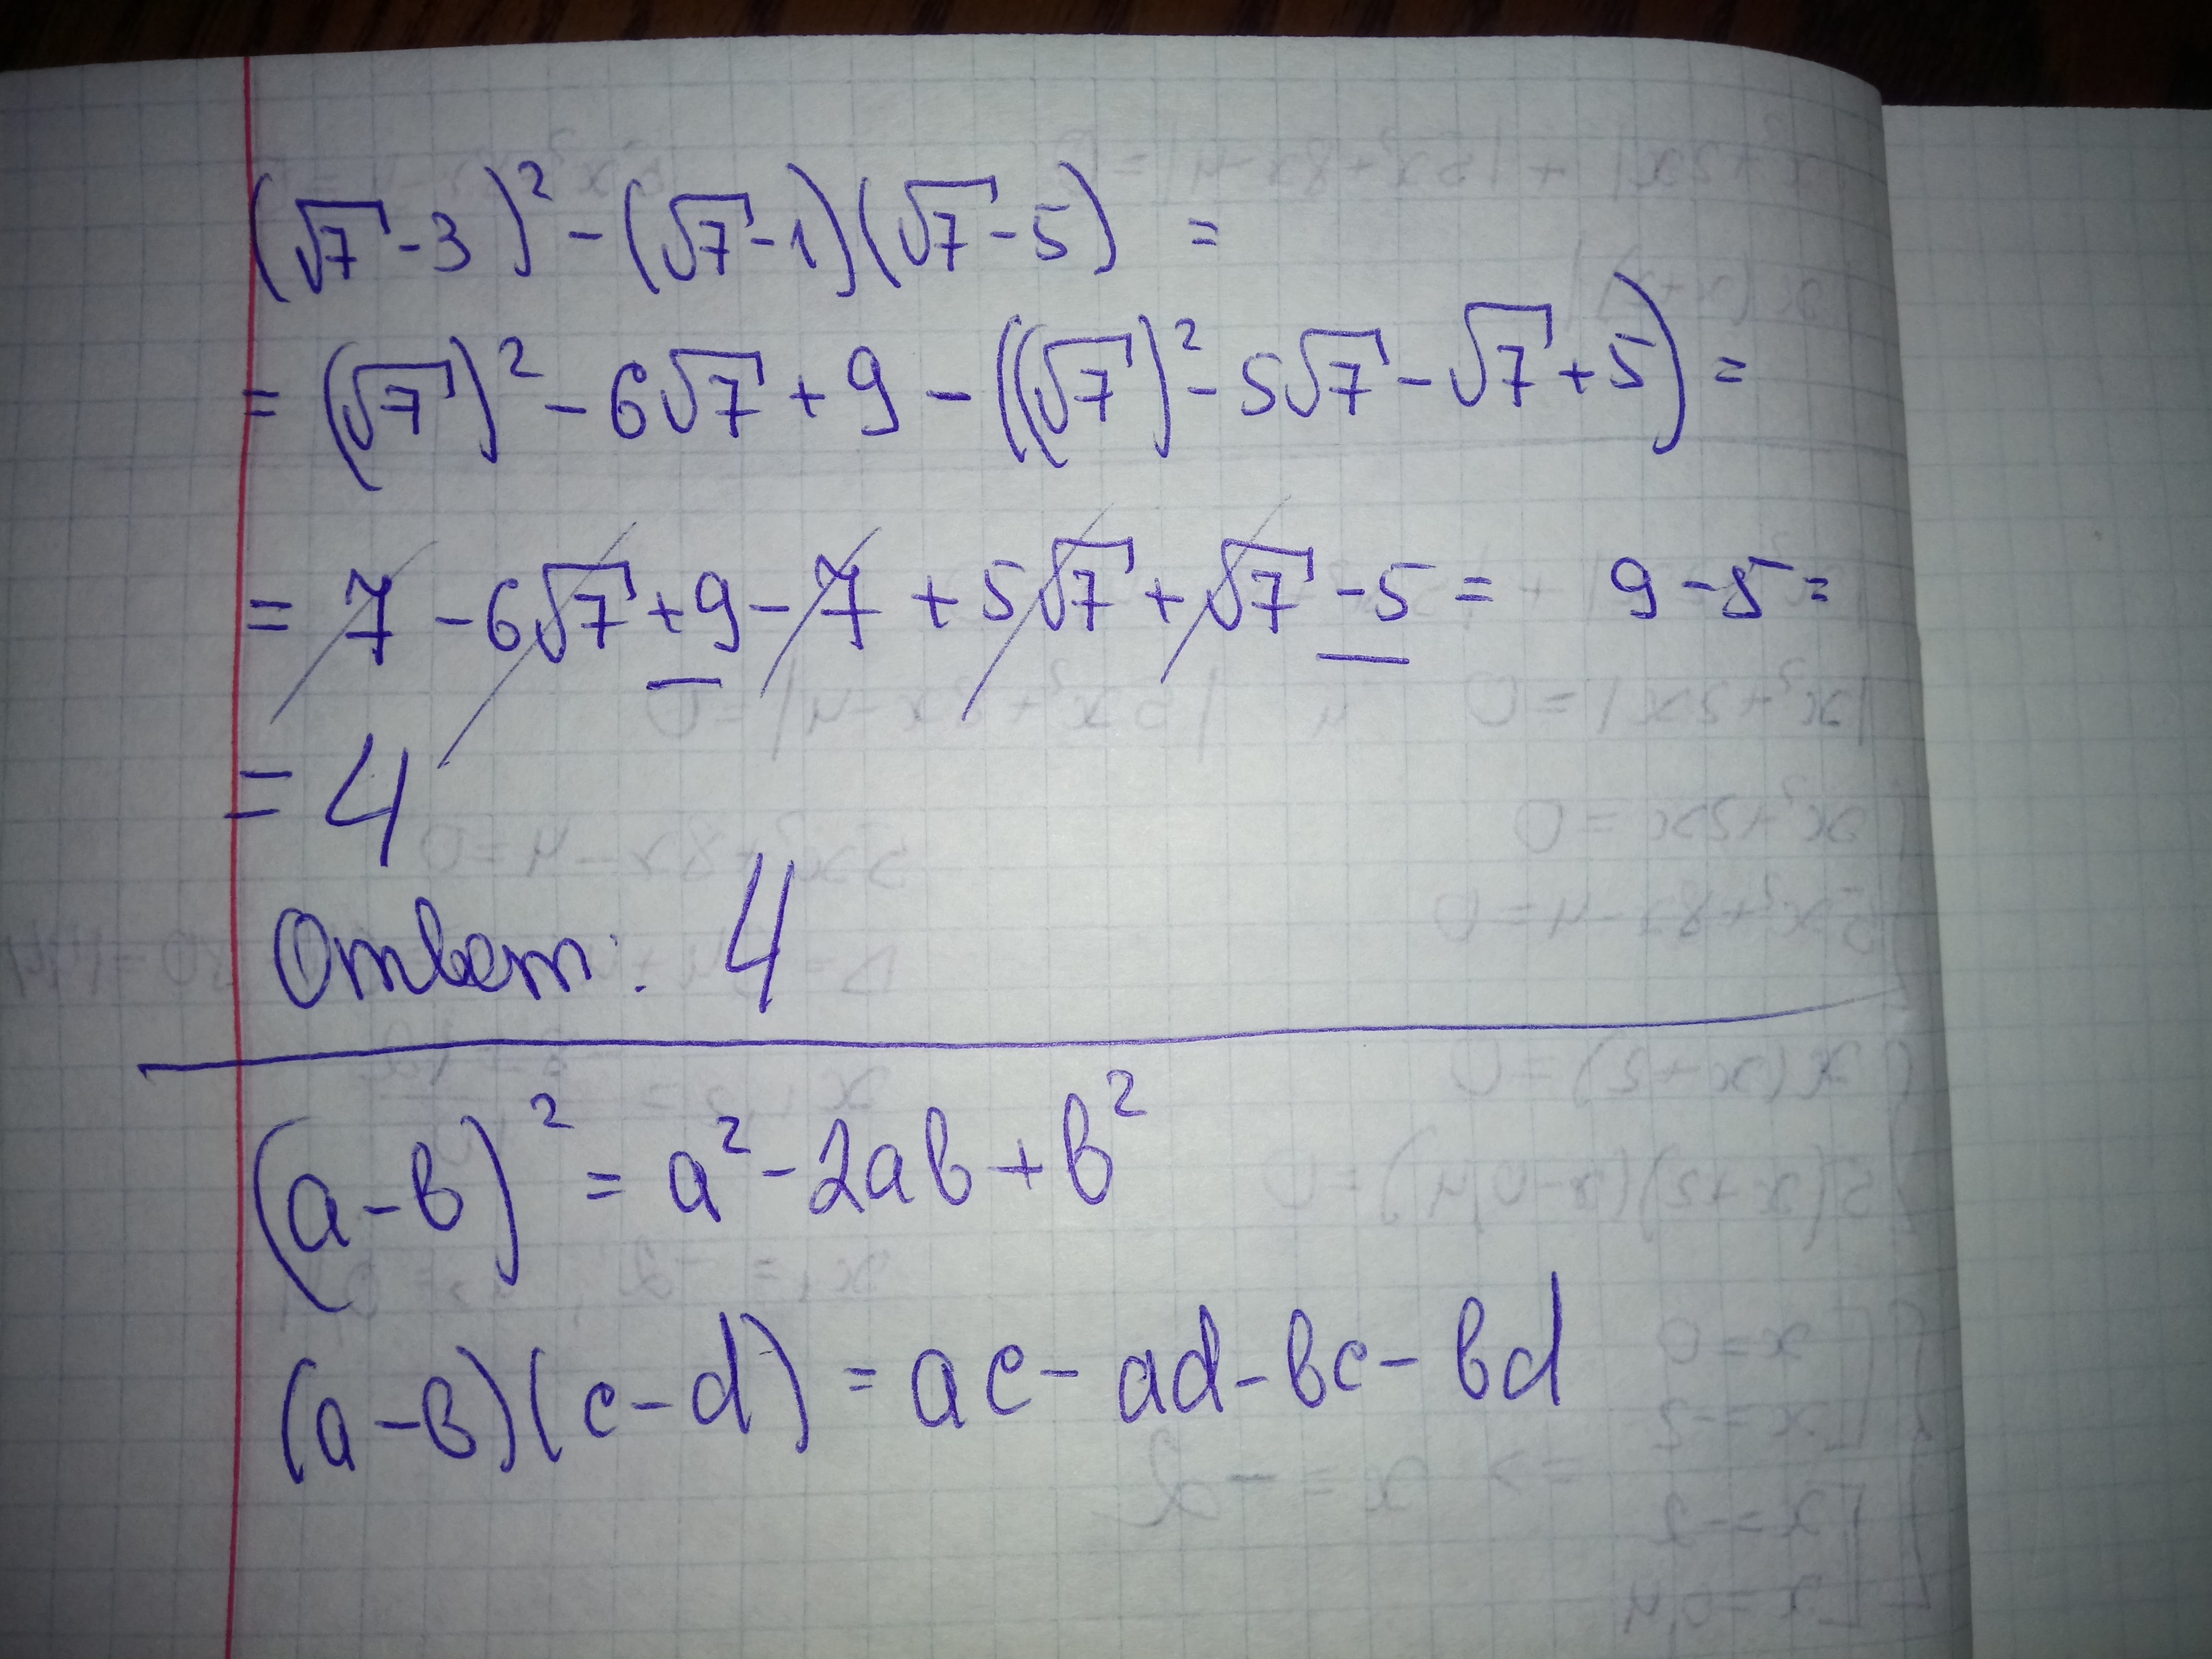 (√7-3)²-(√7-1)(√7-5) =
= (√7)²-6√7+9-((√7)²-5√7-√7+5) =
= 7-6√7+9-7+5√7+√7-5 = 9-5 =
= 4
Ответ: 4
(a-b)² = a²-2ab+b²
(a-b)(c-d) = ac-ad-bc-bd